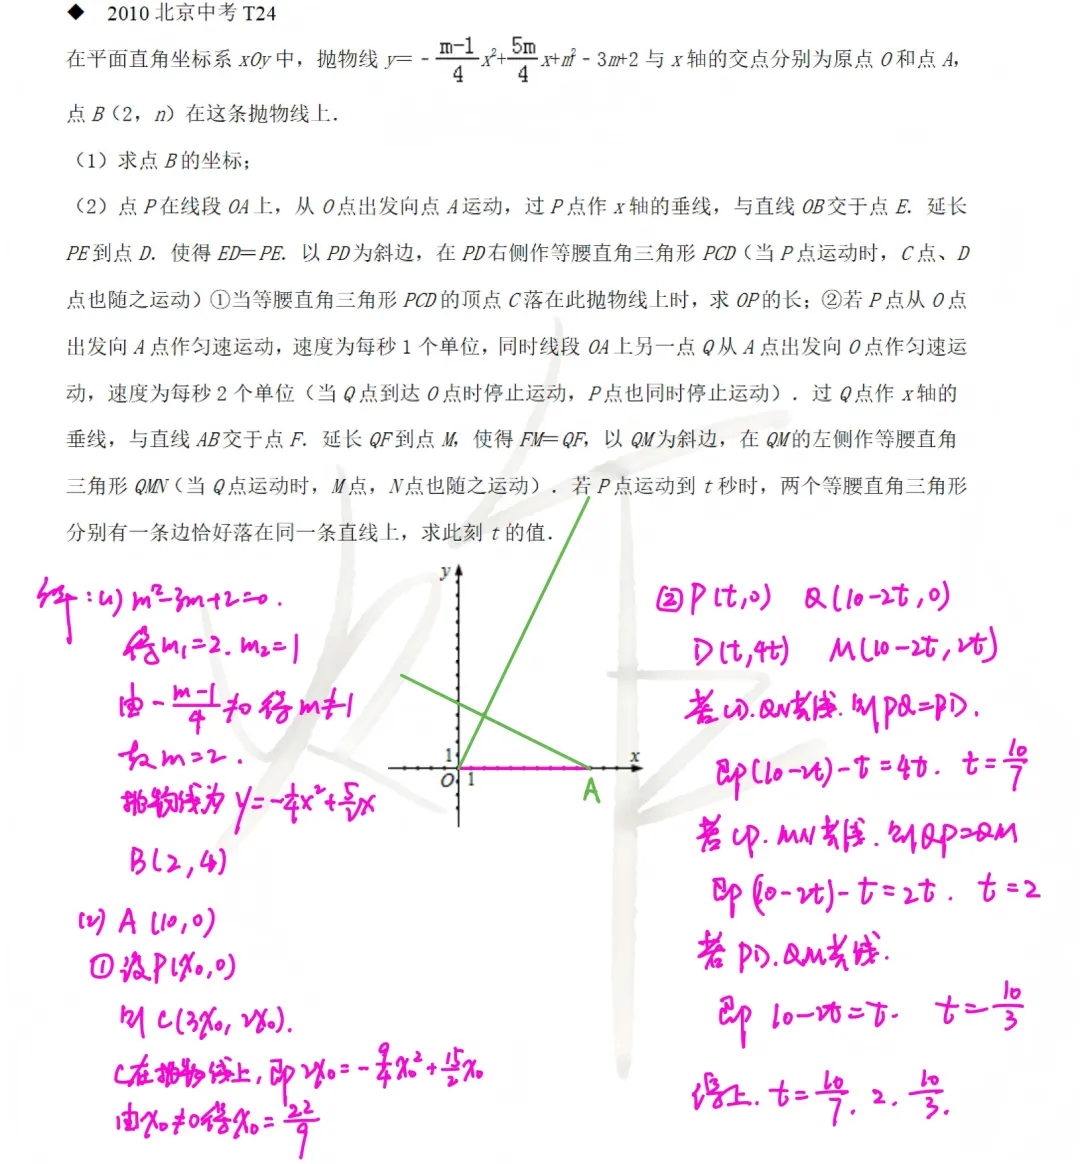 ◆ 2010 北京中考 T24
在平面直角坐标系 xOy 中，抛物线 y=﹣\frac{m-1}{4}x²+\frac{5m}{4}x+m²﹣3m+2 与 x 轴的交点分别为原点 O 和点 A，
点 B（2，n）在这条抛物线上．
（1）求点 B 的坐标；
（2）点 P 在线段 OA 上，从 O 点出发向点 A 运动，过 P 点作 x 轴的垂线，与直线 OB 交于点 E．延长
PE 到点 D．使得 ED=PE．以 PD 为斜边，在 PD 右侧作等腰直角三角形 PCD（当 P 点运动时，C 点、D
点也随之运动）①当等腰直角三角形 PCD 的顶点 C 落在此抛物线上时，求 OP 的长；②若 P 点从 O 点
出发向 A 点作匀速运动，速度为每秒 1 个单位，同时线段 OA 上另一点 Q 从 A 点出发向 O 点作匀速运
动，速度为每秒 2 个单位（当 Q 点到达 O 点时停止运动，P 点也同时停止运动）．过 Q 点作 x 轴的
垂线，与直线 AB 交于点 F．延长 QF 到点 M，使得 FM=QF，以 QM 为斜边，在 QM 的左侧作等腰直角
三角形 QMN（当 Q 点运动时，M 点，N 点也随之运动）．若 P 点运动到 t 秒时，两个等腰直角三角形
分别有一条边恰好落在同一条直线上，求此刻 t 的值．
解：(1) m²-3m+2=0.
得m₁=2. m₂=1
由-\frac{m-1}{4}≠0 得m≠1
故m=2.
抛物线为 y=-\frac{1}{4}x²+\frac{5}{2}x
B(2,4)
(2) A (10,0)
①设P(x₀,0)
则 C(3x₀, 2x₀).
C在抛物线上, 即 2x₀=-\frac{9}{4}x₀²+\frac{15}{2}x₀
由x₀≠0得x₀=\frac{22}{9}
y
1
O
1
x
A
②P(t,0) Q(10-2t,0)
D(t,4t) M(10-2t,2t)
若CD.QN共线.则PQ=PD.
即(10-2t)-t=4t. t=\frac{10}{7}
若CP.MN共线.则QP=QM
即(10-2t)-t=2t. t=2
若PD.QM共线.
即 10-2t=t. t=\frac{10}{3}
综上. t=\frac{10}{7}. 2. \frac{10}{3}.